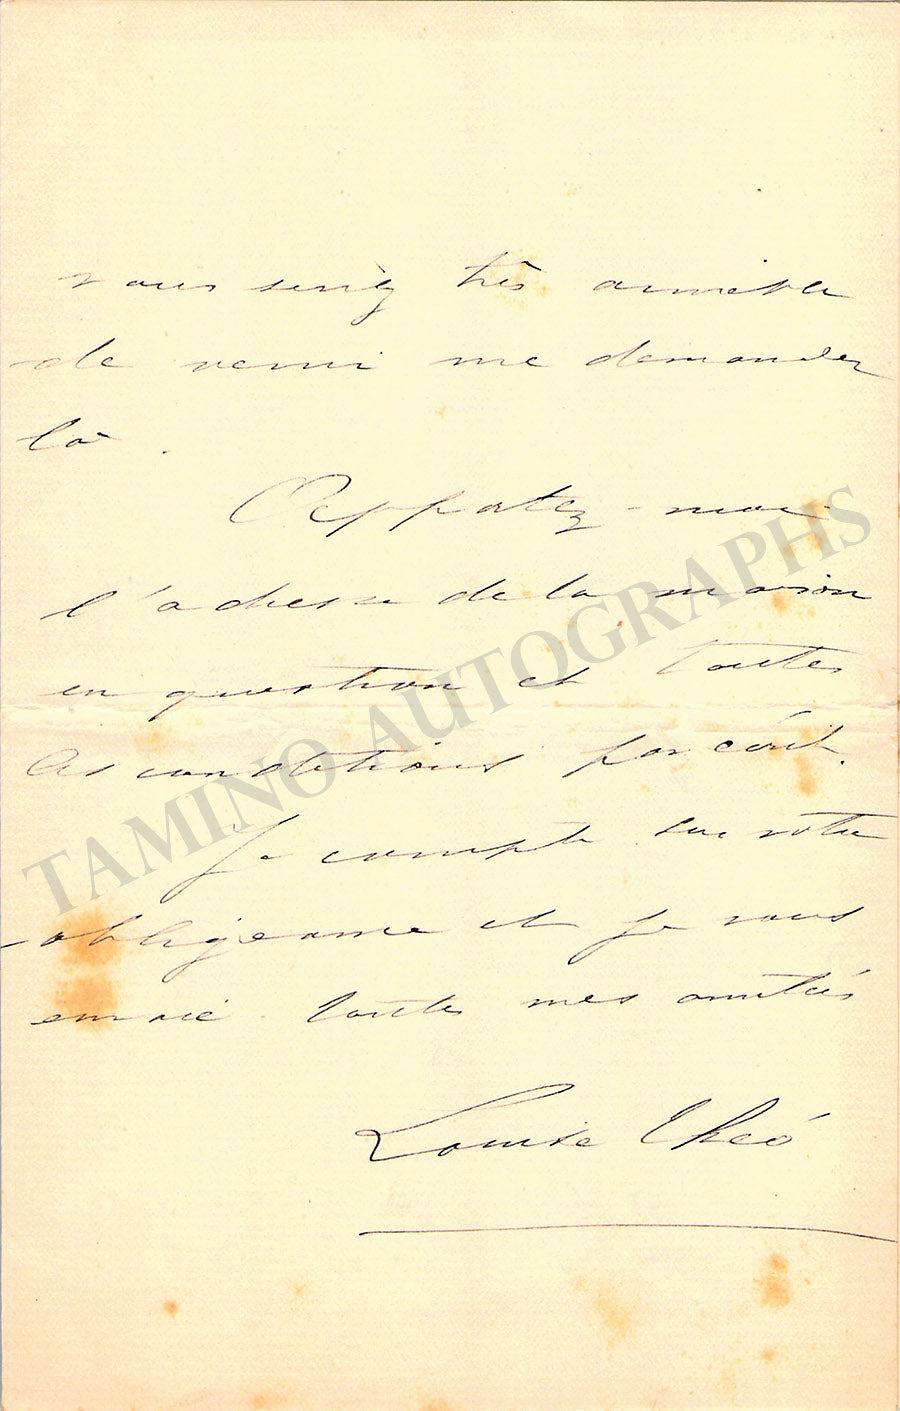 vous seriez très aimable
de venir me demander
là.
Apportez-moi
l'adresse de la maison
en question et toutes
les conditions par écrit.
Je compte sur votre
obligeance et je vous
envoie toutes mes amitiés
Louise Théo
TAMINO AUTOGRAPHS